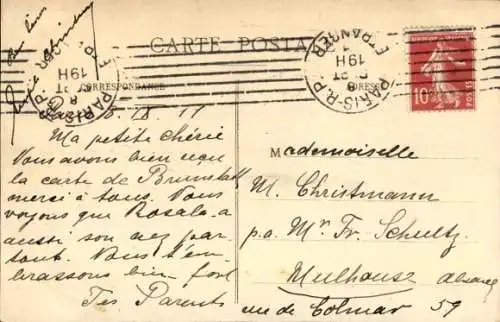 CARTE POSTALE
CORRESPONDANCE
PARIS R.P.
ETRANGER
19H
PARIS-R.P.
ETRANGER
19H
10
Ma petite chérie
Vous avons bien reçu
la carte de Brunstatt
merci à tous. Vous
voyons que Rosala a
aussi son nez par-
tout. Vous t'em-
brassons bien fort
Tes Parents
Mademoiselle
M. Christmann
p.a. Mr. Fr. Schultz
Mulhouse Alsace
rue de Colmar 59